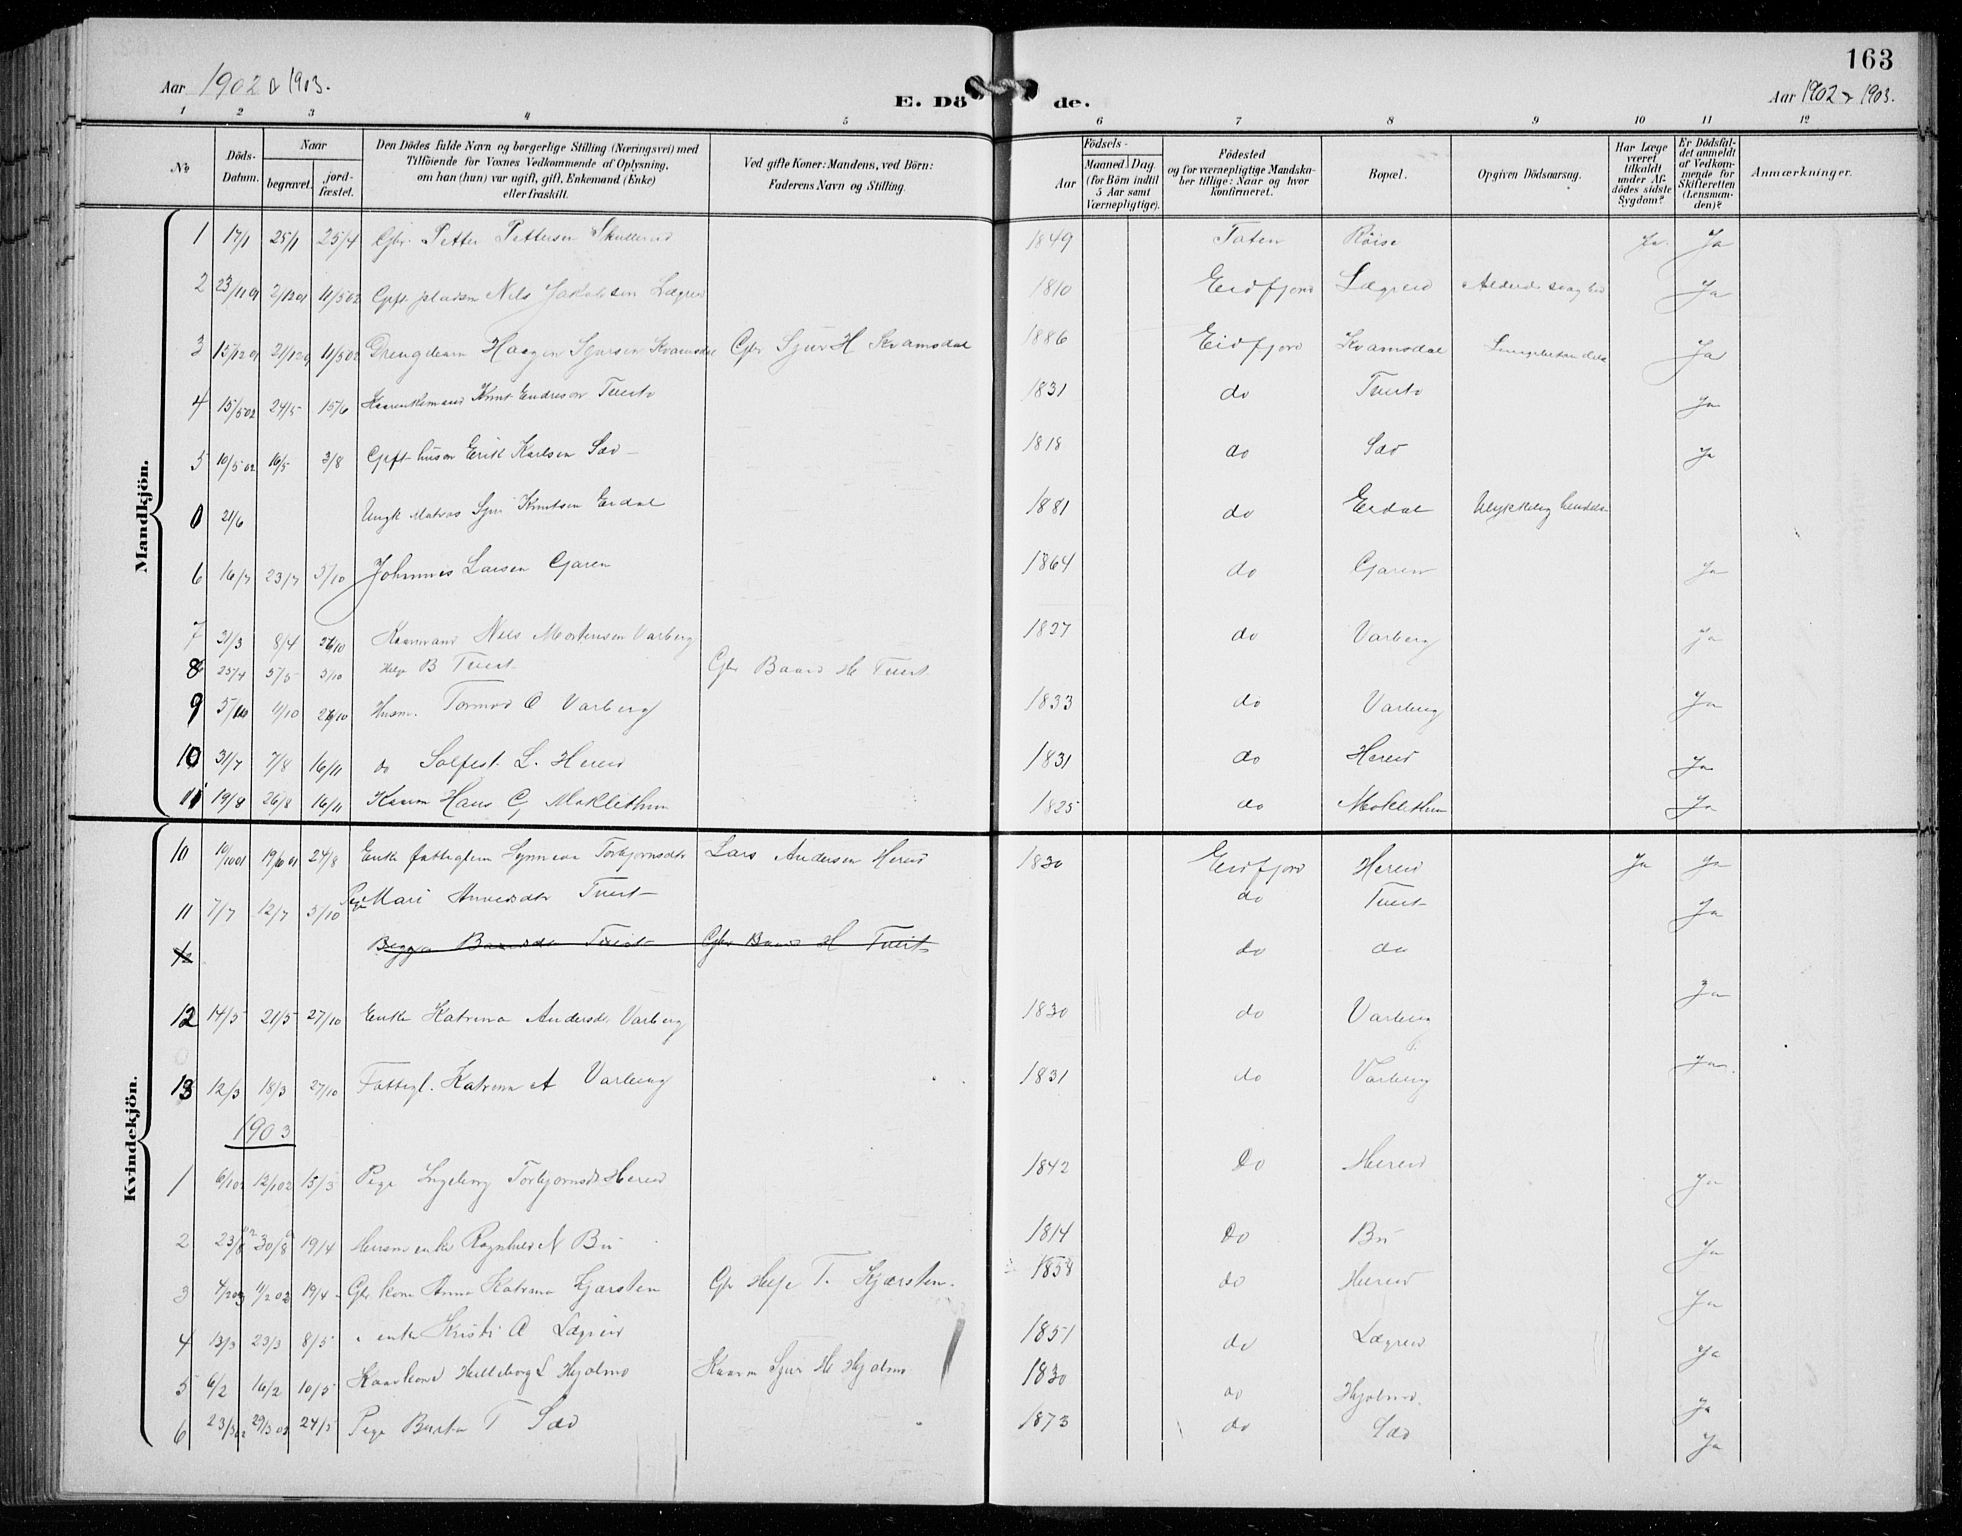 163
Aar 1902 & 1903.
E. Döde.
Aar 1902 & 1903.
1 2 3 4 5 6 7 8 9 10 11 12
No
Döds-Datum.
Naar
begravet.
jord-fæstet.
Den Dödes fulde Navn og borgerlige Stilling (Næringsvei) med
Tilföiende for Voxnes Vedkommende af Oplysning,
om han (hun) var ugift, gift, Enkemand (Enke)
eller fraskilt.
Ved gifte Koner: Mandens, ved Börn:
Faderens Navn og Stilling.
Födsels-
Aar
Maaned
Dag
(for Börn indtil
5 Aar samt
Værnepligtige).
Födested
og for værnepligtige Mandskaber tillige: Naar og hvor
konfirmeret.
Bopæl.
Opgiven Dödsaarsag.
Har Læge
været
tilkaldt
under Afdödes sidste
Sygdom?
Er Dödsfaldet anmeldt
af Vedkommende for
Skifteretten
(Lensmanden)?
Anmærkninger.
Mandkjön.
1 17/1 25/1 25/4 Gbr. Petter Pettersen 1849 Toten Röise Ja. Ja
2 23/11 01 2/12 01 11/5 02 Nils Jakobsen Lægreid 1810 Eidfjord Lægreid Ja
3 15/12 01 21/12 01 11/5 02 Haagen Sjursen Kvamsdal Gbr Sjur H Kvamsdal 1886 Eidfjord Kvamsdal Ja
4 15/5 02 24/5 15/6 Knut Endreson Tveito 1831 do Tveito Ja
5 10/5 02 16/5 3/8 Erik Karlsen Sæd 1818 do Sæd Ja
0 21/6 Ungk Matros Sjur Knutsen Erdal 1881 do Erdal
6 16/7 23/7 5/10 Johannes Larsen Garen 1864 do Garen Ja
7 31/3 8/4 26/10 Kaarmand Nils Mortensen Varberg 1827 do Varberg Ja
8 23/4 5/5 5/10 Helge B Tveit Gbr Baard H Tveit
9 5/10 11/10 26/10 Husm. Tormod O Varberg 1833 do Varberg Ja
10 31/7 7/8 16/11 do Solfest L. Hereid 1831 do Hereid Ja
11 19/8 26/8 16/11 Kaarm Hans G Moklethun 1825 do Moklethun Ja
Kvindekjön.
10 10/10 01 19/10 01 24/8 Enke fattiglem Synneva Torbjornsdtr Lars Andersen Hereid 1830 Eidfjord Hereid Ja Ja
11 7/7 12/7 5/10 Pige Mari Tveit do Tveit Ja
12 Baardsdtr Tveit Gbr Baard H Tveit do do
12 14/5 21/5 27/10 Enke Katrina Andersdtr Varberg 1830 do Varberg Ja
13 12/3 18/3 27/10 Fattigl. Katrina A Varberg 1831 do Varberg Ja
1903
1 6/1 02 12/1 02 15/3 Pige Ingeborg Torbjornsdtr Hereid 1842 Do Hereid Ja
2 23/8 02 30/8 02 19/4 Husm enke Ragnhild N Bu 1814 Do Bu Ja
3 4/2 03 11/2 03 19/4 Gbr kone Anna Katrina Kjærsten Gbr Helje T. Kjærsten. 1858 do Hereid Ja
4 13/3 23/3 8/5 " enke Kristi O Lægreid 1851 do Lægreid Ja
5 6/2 16/2 10/5 Kaarkone Helleborg L Hjolmo Kaarm Sjur H Hjolmo 1830 do Hjolmo. Ja
6 23/3 02 29/3 02 24/5 Pige Barta T Sæd 1873 do Sæd Ja